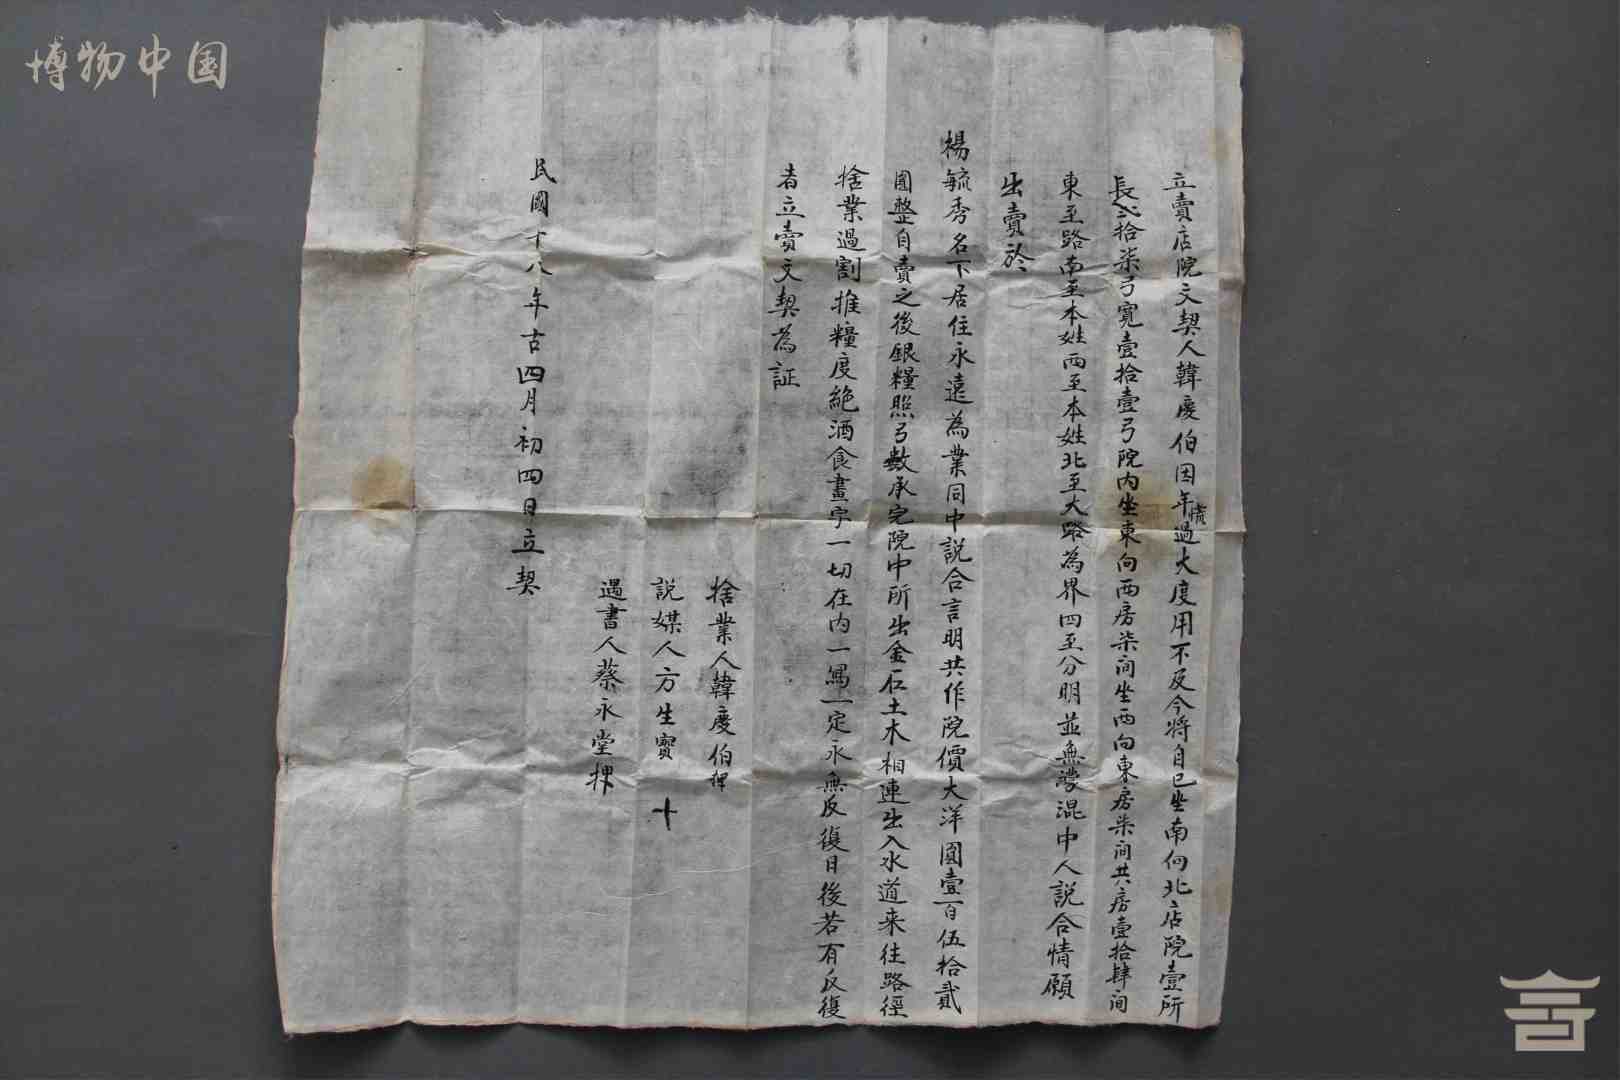 博物中国
立賣店院文契人韓慶伯因年荒過大度用不及今將自己坐南向北店院壹所
長弍拾柒弓寬壹拾壹弓院内坐東向西房柒间坐西向東房柒间共房壹拾肆间
東至路南至本姓西至本姓北至大路為界四至分明並無濛混中人説合情願
出賣於
楊毓秀名下居住永遠為業同中説合言明共作院價大洋圓壹百伍拾貳
圓整自賣之後銀糧照弓數承完院中所出金石土木相連出入水道来往路徑
捨業過割推糧度絶酒食畫字一切在内一寫一定永無反復日後若有反復
者立賣文契為証
捨業人韓慶伯押
説媒人方生寶十
過書人蔡永堂押
民國十八年古四月初四日立契